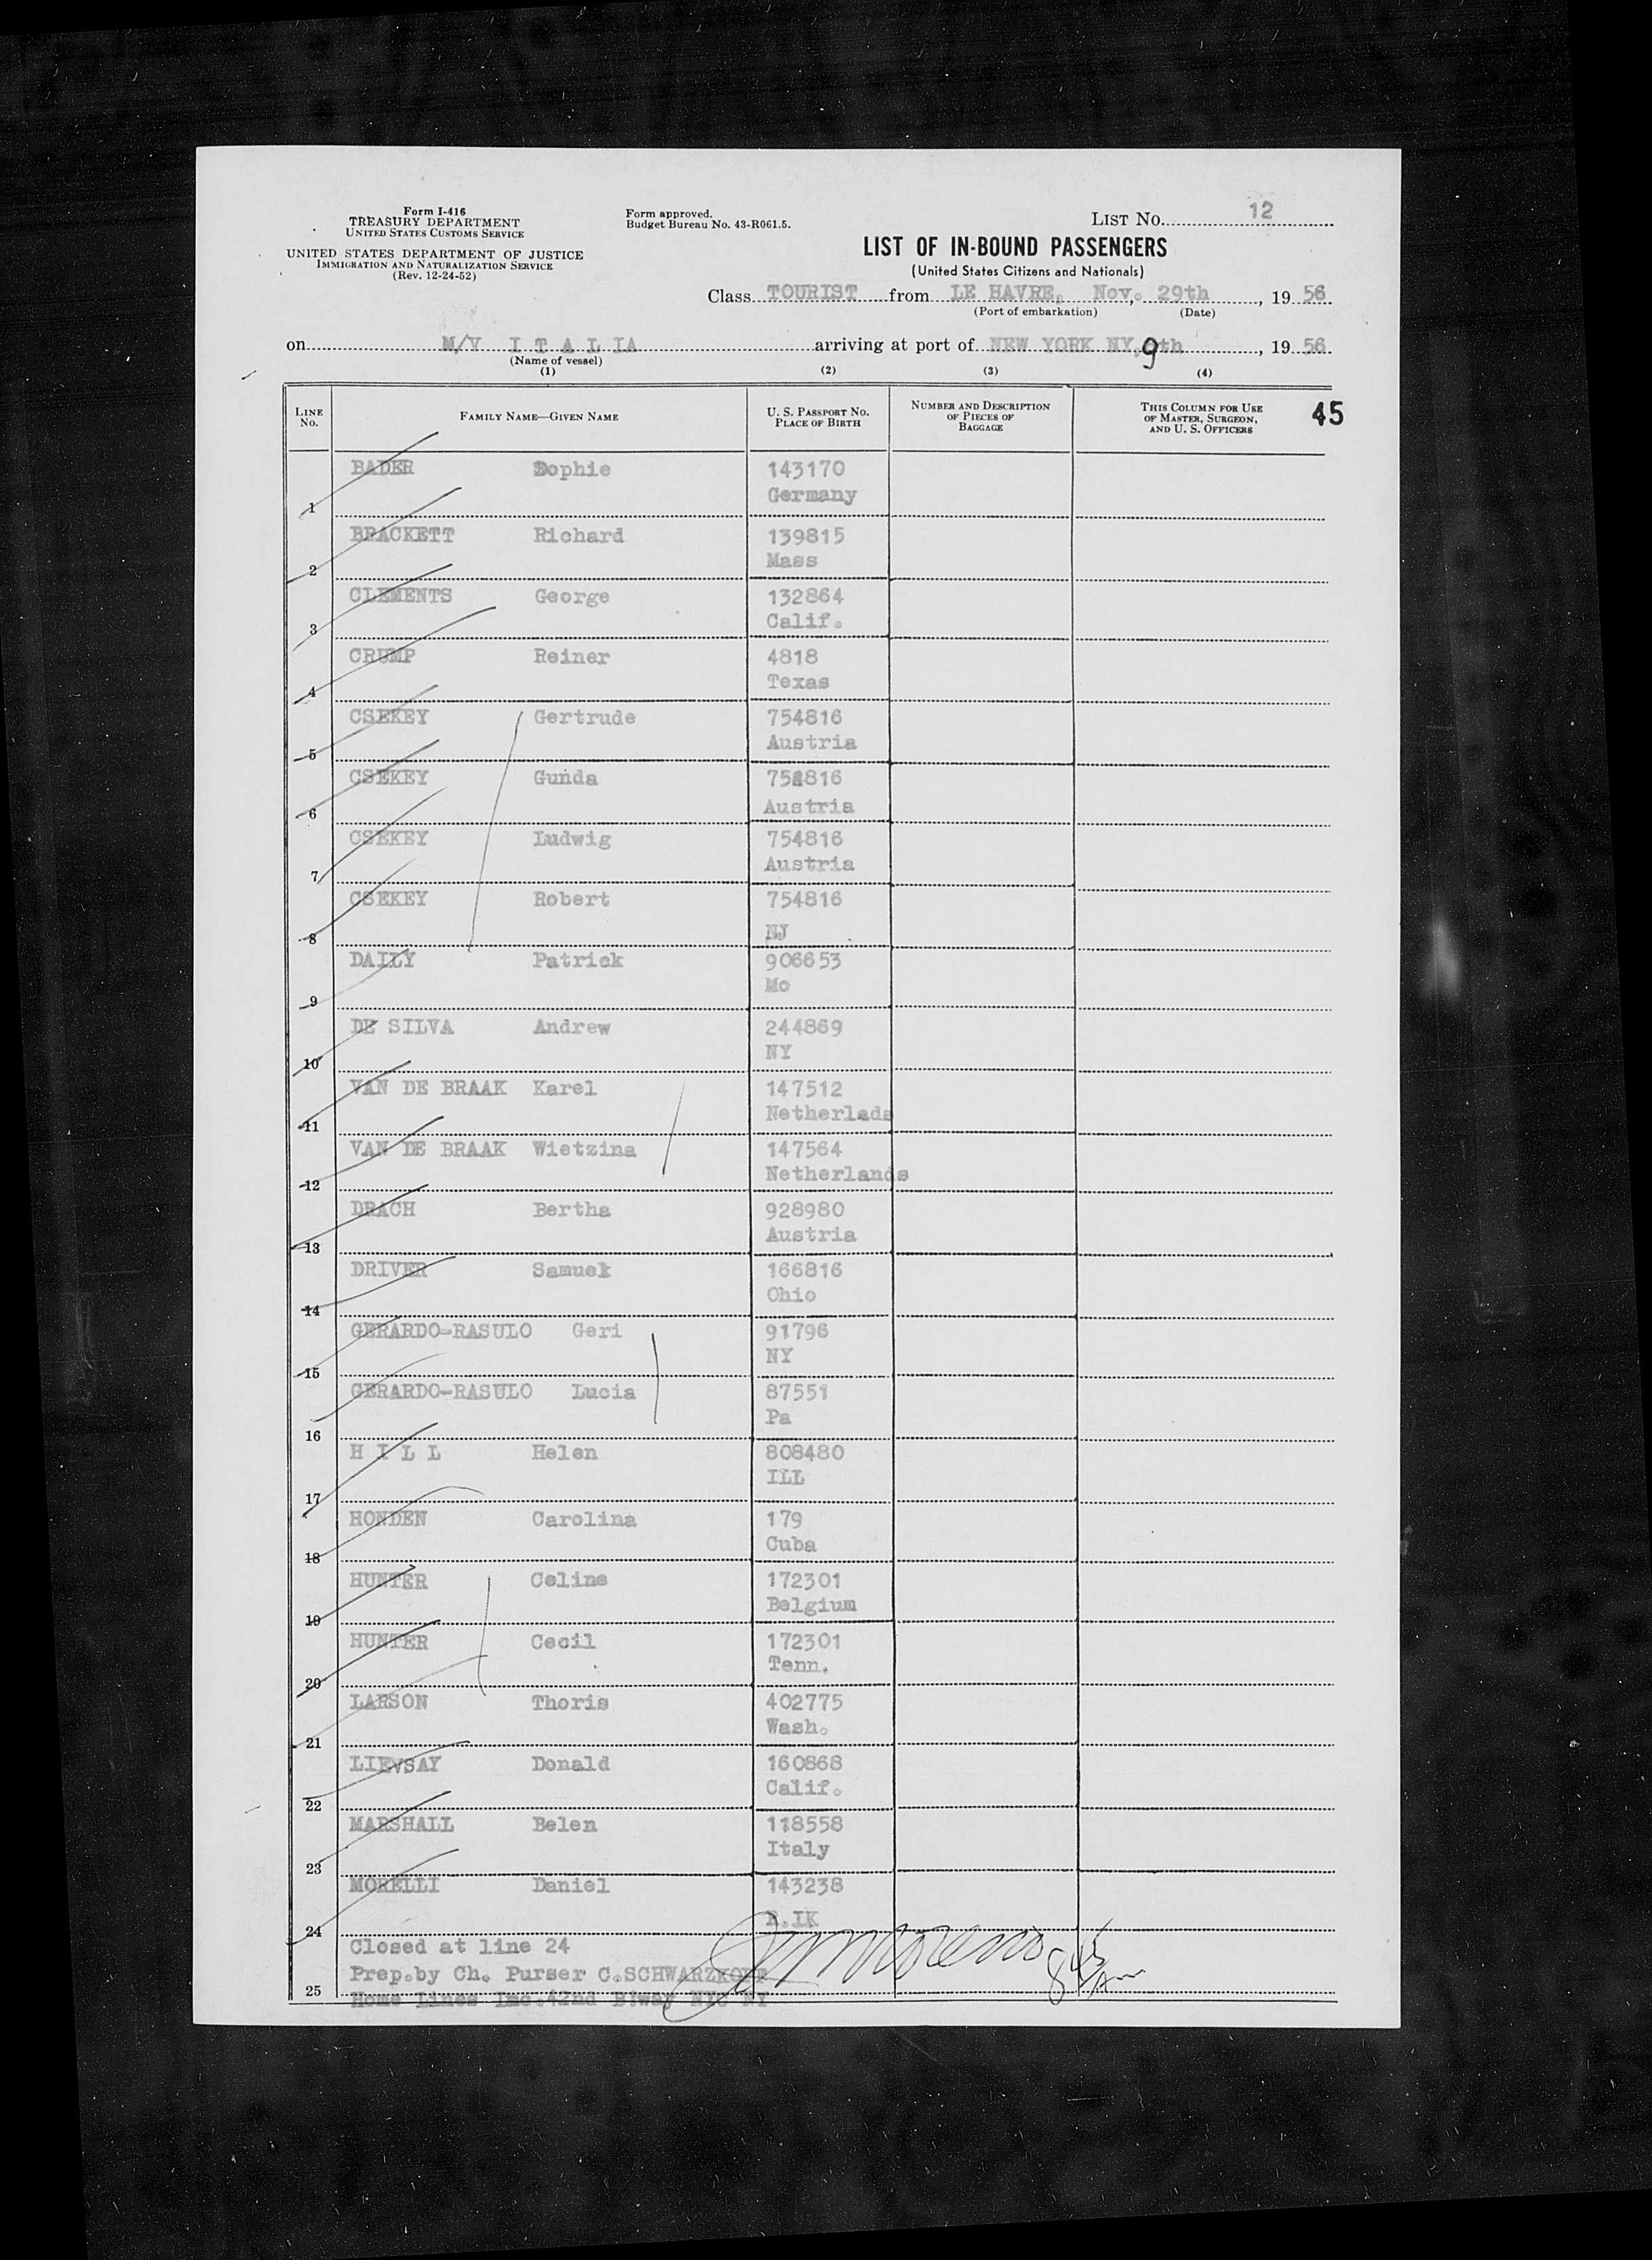 Form I-416
TREASURY DEPARTMENT
UNITED STATES CUSTOMS SERVICE
UNITED STATES DEPARTMENT OF JUSTICE
IMMIGRATION AND NATURALIZATION SERVICE
(Rev. 12-24-52)
Form approved.
Budget Bureau No. 43-R061.5.
LIST NO. 12
LIST OF IN-BOUND PASSENGERS
(United States Citizens and Nationals)
Class TOURIST from LE HAVRE, Nov. 29th, 19 56
(Port of embarkation) (Date)
on M/V I T A L IA arriving at port of NEW YORK NY, 9th, 19 56
(Name of vessel)
(1) (2) (3) (4)
LINE No. FAMILY NAME—GIVEN NAME U. S. PASSPORT NO. PLACE OF BIRTH NUMBER AND DESCRIPTION OF PIECES OF BAGGAGE THIS COLUMN FOR USE OF MASTER, SURGEON, AND U. S. OFFICERS 45
BADER Sophie 143170
1 Germany
BRACKETT Richard 139815
2 Mass
CLEMENTS George 132864
3 Calif.
CRUMP Reiner 4818
4 Texas
CSEKEY Gertrude 754816
5 Austria
CSEKEY Gunda 754816
6 Austria
CSEKEY Ludwig 754816
7 Austria
CSEKEY Robert 754816
8 NJ
DAILY Patrick 906653
9 Mo
DE SILVA Andrew 244869
10 NY
VAN DE BRAAK Karel 147512
11 Netherlads
VAN DE BRAAK Wietzina 147564
12 Netherlands
DRACH Bertha 928980
13 Austria
DRIVER Samuel 166816
14 Ohio
GERARDO-RASULO Geri 91796
15 NY
GERARDO-RASULO Lucia 87551
16 Pa
H I L L Helen 808480
17 ILL
HONDEN Carolina 179
18 Cuba
HUNTER Celine 172301
19 Belgium
HUNTER Cecil 172301
20 Tenn.
LARSON Thoris 402775
21 Wash.
LIEVSAY Donald 160868
22 Calif.
MARSHALL Belen 118558
23 Italy
MORELLI Daniel 143238
24
Closed at line 24
Prep.by Ch. Purser C.SCHWARZKOPF
25 Home Lines Inc.42nd B!way NYC NY